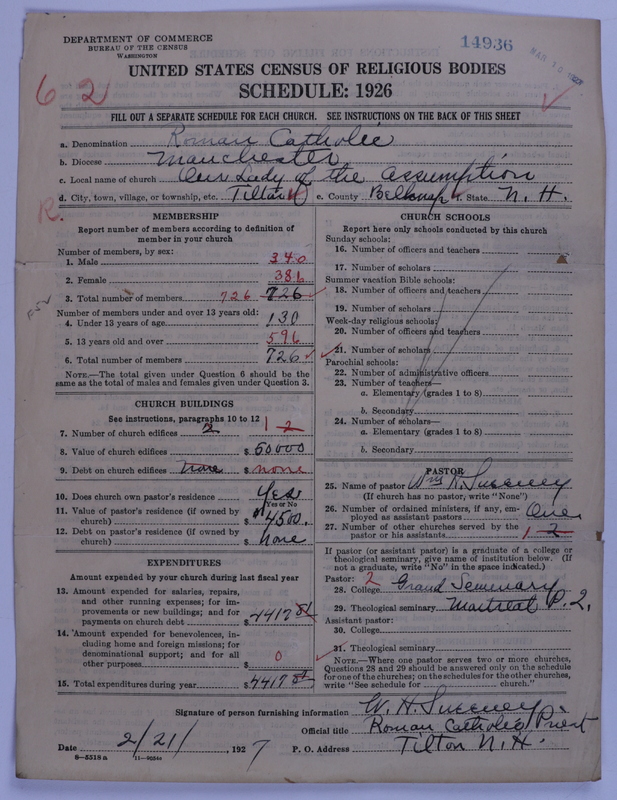 DEPARTMENT OF COMMERCE
BUREAU OF THE CENSUS
WASHINGTON
14936
MAR 10
UNITED STATES CENSUS OF RELIGIOUS BODIES
SCHEDULE: 1926
62
FILL OUT A SEPARATE SCHEDULE FOR EACH CHURCH. SEE INSTRUCTIONS ON THE BACK OF THIS SHEET
a. Denomination Roman Catholic
b. Diocese Manchester
c. Local name of church Our Lady of the Assumption
d. City, town, village, or township, etc. Tilton e. County Belknap f. State N. H.
R.
MEMBERSHIP
Report number of members according to definition of
member in your church
Number of members, by sex:
1. Male 340
2. Female 386
3. Total number of members 726 726
Number of members under and over 13 years old:
4. Under 13 years of age 130
5. 13 years old and over 596
6. Total number of members 726
NOTE.—The total given under Question 6 should be
same as the total of males and females given under Question 3.
CHURCH BUILDINGS
See instructions, paragraphs 10 to 12
7. Number of church edifices 2 1 2
8. Value of church edifices $ 50000
9. Debt on church edifices none $ none
10. Does church own pastor's residence Yes
Yes or No
11. Value of pastor's residence (if owned by
church) $ 4500.
12. Debt on pastor's residence (if owned by
church) $ none
EXPENDITURES
Amount expended by your church during last fiscal year
13. Amount expended for salaries, repairs,
and other running expenses; for im-
provements or new buildings; and for
payments on church debt $ 4417 81
14. Amount expended for benevolences, in-
cluding home and foreign missions; for
denominational support; and for all
other purposes $ 0
15. Total expenditures during year $ 4417 81
CHURCH SCHOOLS
Report here only schools conducted by this church
Sunday schools:
16. Number of officers and teachers
17. Number of scholars
Summer vacation Bible schools:
18. Number of officers and teachers
19. Number of scholars
Week-day religious schools:
20. Number of officers and teachers
21. Number of scholars
Parochial schools:
22. Number of administrative officers
23. Number of teachers—
a. Elementary (grades 1 to 8)
b. Secondary
24. Number of scholars—
a. Elementary (grades 1 to 8)
b. Secondary
PASTOR
25. Name of pastor Wm H. Sweeney
(If church has no pastor, write "None")
26. Number of ordained ministers, if any, em-
ployed as assistant pastors One
27. Number of other churches served by the
pastor or his assistants 1 2
If pastor (or assistant pastor) is a graduate of a college or
theological seminary, give name of institution below. (If
not a graduate, write "No" in the space indicated.)
Pastor: 2
28. College Grand Seminary
29. Theological seminary Montreal P. Q.
Assistant pastor:
30. College
31. Theological seminary
NOTE.—Where one pastor serves two or more churches,
Questions 28 and 29 should be answered only on the schedule
for one of the churches; on the schedules for the other churches,
write "See schedule for church."
Signature of person furnishing information W. H. Sweeney
Official title Roman Catholic Priest
Date 2/21/, 1927 P. O. Address Tilton N. H.
8—5518 a 11—9034c